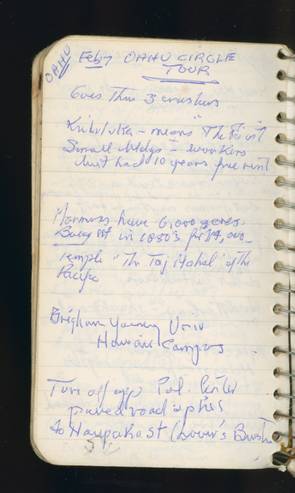 OAHU
Feb 7 OAHU CIRCLE
TOUR
Goes thru 3 crushers
means "The Point
Small bldgs - workers
just had 10 years free rent
Mormons have 6,000 acres.
Bought in 1880's for
Temple "The Taj Mahal" of the
Pacific
Brigham Young Univ
Hawaii Campus
Turn off opp Pol. Center
paved road uphill
to Naupaka St (Lover's